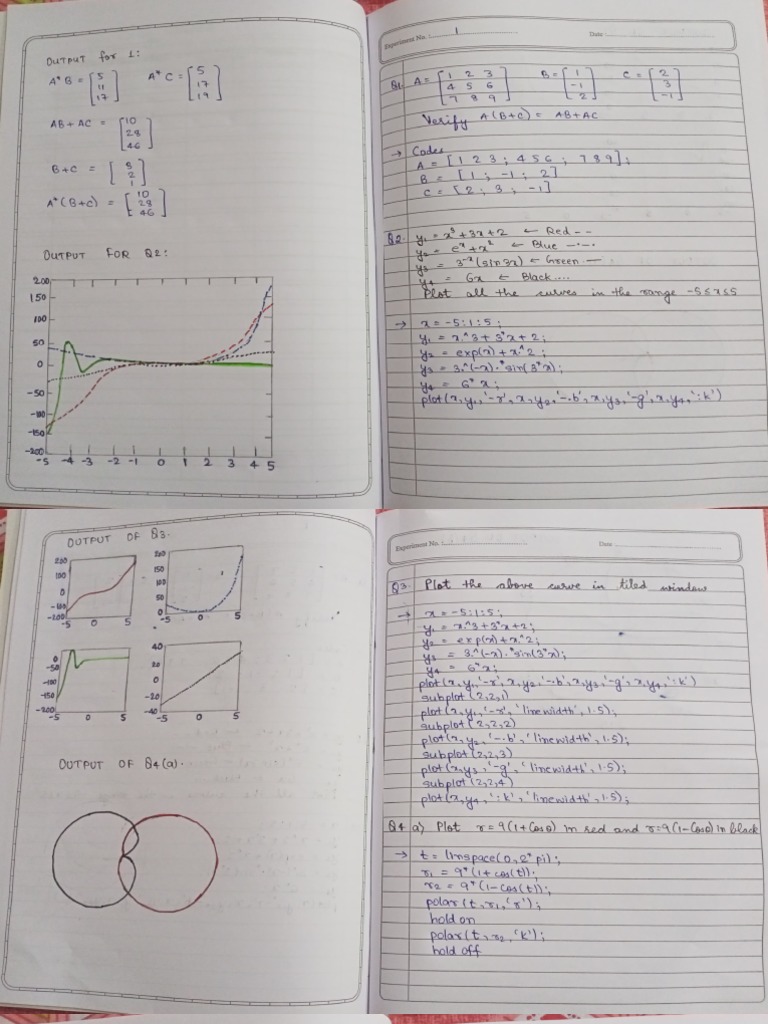 OUTPUT for 1:
A*B = [5 11 17] A*C = [5 17 19]
AB + AC = [10 28 46]
B+C = [3 2 1]
A*(B+C) = [10 28 46]
OUTPUT FOR Q2:
200
150
100
50
0
-50
-100
-150
-200
-5 -4 -3 -2 -1 0 1 2 3 4 5
Experiment No.: 1 Date:
Q1. A = [1 2 3 4 5 6 7 8 9] B = [1 -1 2] C = [2 3 -1]
Verify A(B+C) = AB+AC
→ Codes
A = [1 2 3 ; 4 5 6 ; 7 8 9];
B = [1 ; -1 ; 2]
C = [2 ; 3 ; -1]
Q2. y₁ = x³+3x+2 ← Red - -
y₂ = eˣ + x² ← Blue -.-.
y₃ = 3⁻ˣ(sin3x) ← Green —
y₄ = 6x ← Black ....
Plot all the curves in the range -5≤x≤5
→ x = -5:1:5;
y₁ = x.^3+3*x+2;
y₂ = exp(x)+x.^2;
y₃ = 3.^(-x).*sin(3*x);
y₄ = 6*x;
plot(x,y₁,'-r',x,y₂,'-.b',x,y₃,'-g',x,y₄,':k')
OUTPUT OF Q3.
200
150
100
0
-100
-200
-5 0 5
200
150
100
50
0
-5 0 5
0
-50
-100
-150
-200
-5 0 5
40
20
0
-20
-40
-5 0 5
OUTPUT OF Q4(a).
Experiment No.: Date:
Q3. Plot the above curve in tiled window
→ x = -5:1:5;
y₁ = x.^3+3*x+2;
y₂ = exp(x)+x.^2;
y₃ = 3.^(-x).*sin(3*x);
y₄ = 6*x;
plot(x,y₁,'-r',x,y₂,'-.b',x,y₃,'-g',x,y₄,':k')
subplot(2,2,1)
plot(x,y₁,'-r','linewidth',1.5);
subplot(2,2,2)
plot(x,y₂,'-.b','linewidth',1.5);
subplot(2,2,3)
plot(x,y₃,'-g','linewidth',1.5);
subplot(2,2,4)
plot(x,y₄,':k','linewidth',1.5);
Q4 a) Plot r=9(1+Cosθ) in red and r=9(1-Cosθ) in black
→ t = linspace(0,2*pi);
r₁ = 9*(1+cos(t));
r₂ = 9*(1-cos(t));
polar(t,r₁,'r');
hold on
polar(t,r₂,'k');
hold off